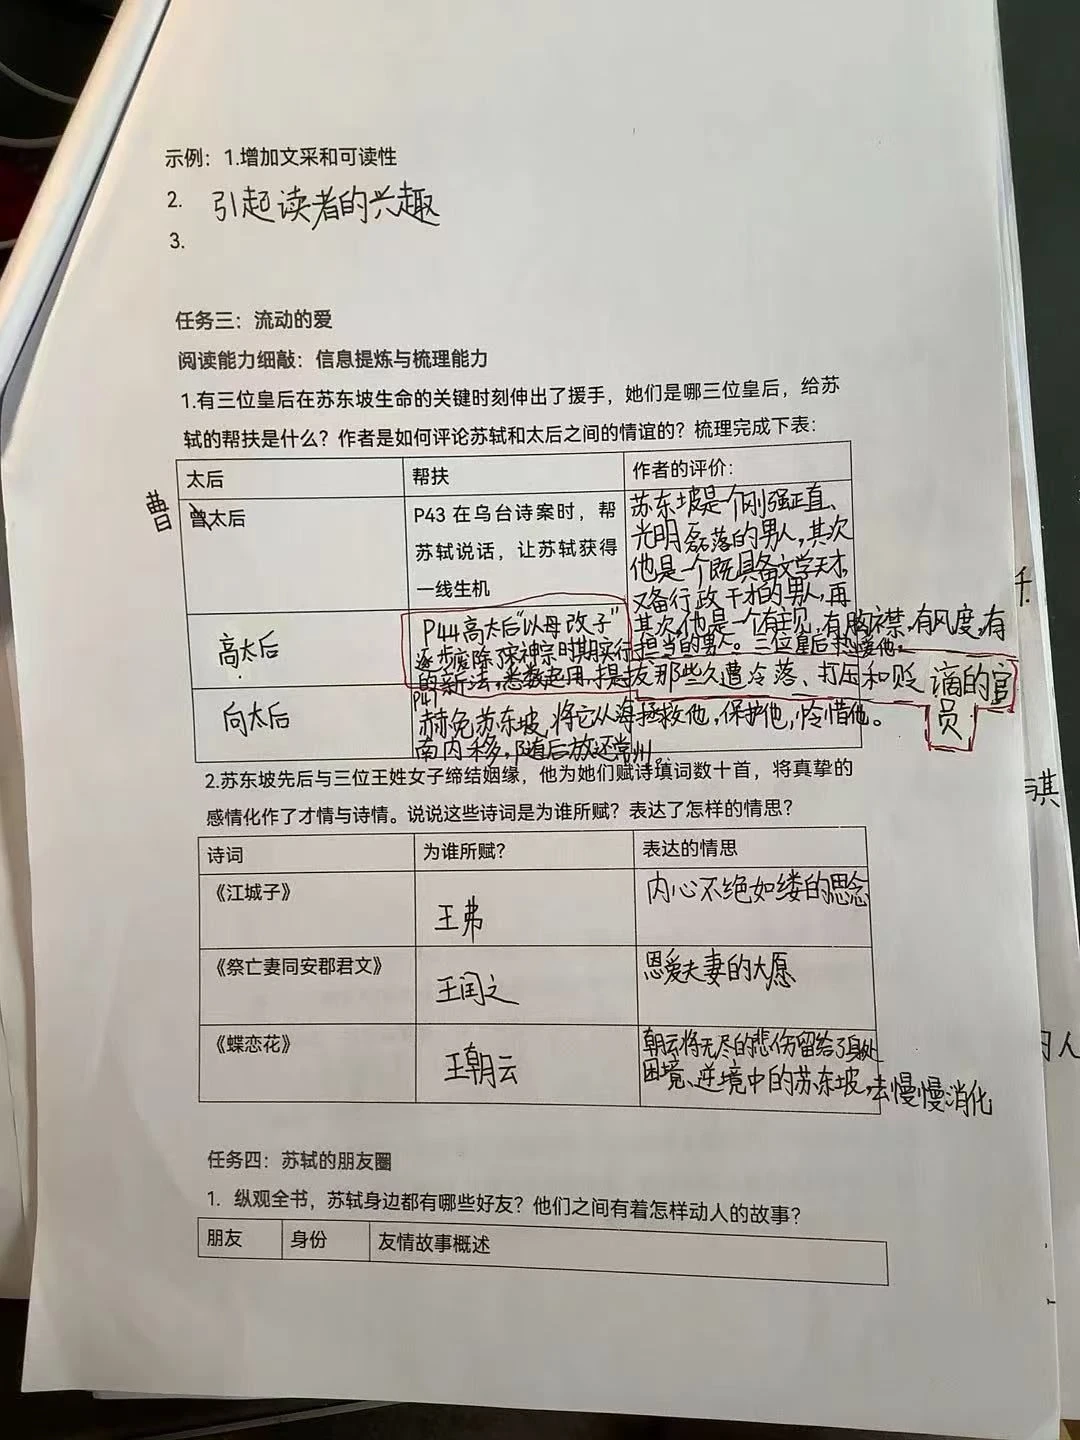 示例：1.增加文采和可读性
2. 引起读者的兴趣
3.
任务三：流动的爱
阅读能力细敲：信息提炼与梳理能力
1.有三位皇后在苏东坡生命的关键时刻伸出了援手，她们是哪三位皇后，给苏
轼的帮扶是什么？作者是如何评论苏轼和太后之间的情谊的？梳理完成下表：
太后
帮扶
作者的评价：
曹
曾太后
P43 在乌台诗案时，帮
苏轼说话，让苏轼获得
一线生机
苏东坡是一个刚强正直、
光明磊落的男人，其次
他是一个既具备文学天才，
又备行政干才的男人，再
其次，他是一个有主见，有胸襟，有风度，有
担当的男人。三位皇后热爱他，
拯救他，保护他，怜惜他。
高太后
P44高太后“以母改子”
逐步废除了宋神宗时期实行
的新法，悉数起用，提拔那些久遭冷落、打压和贬谪的官
员
向太后
P47
赦免苏东坡，将它从海
南内移，随后放还常州。
2.苏东坡先后与三位王姓女子缔结姻缘，他为她们赋诗填词数十首，将真挚的
感情化作了才情与诗情。说说这些诗词是为谁所赋？表达了怎样的情思？
诗词
为谁所赋？
表达的情思
《江城子》
王弗
内心不绝如缕的思念
《祭亡妻同安郡君文》
王闰之
恩爱夫妻的大愿
《蝶恋花》
王朝云
朝云将无尽的悲伤留给了身处
困境、逆境中的苏东坡，去慢慢消化
任务四：苏轼的朋友圈
1. 纵观全书，苏轼身边都有哪些好友？他们之间有着怎样动人的故事？
朋友
身份
友情故事概述